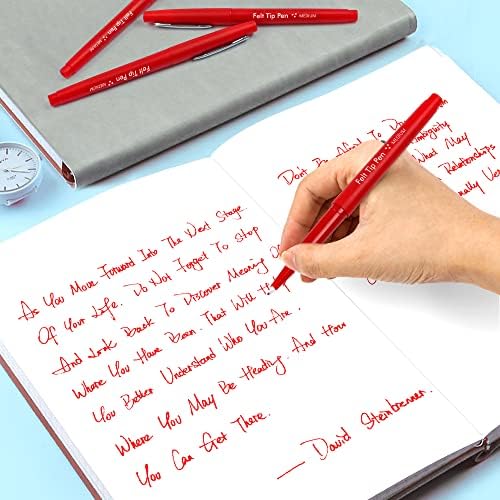 Felt Tip Pen MEDIUM
Felt Tip Pen MEDIUM
Felt Tip Pen MEDIUM
Felt Tip Pen MEDIUM
As You Move Forward Into The Next Stage
Of Your Life. Do Not Forget To Stop
And Look Back To Discover Meaning Of
Where You Have Been. That Will Help
You Better Understand Who You Are.
Where You May Be Heading. And How
You Can Get There.
— David Steinbrenner.
Don't Be Afraid To
Ambiguity
What May
Relationships